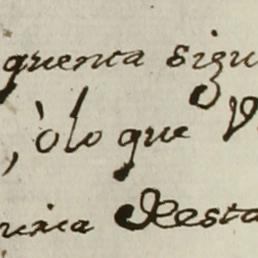 quenta sigu
, òlo que V
uxia Resta